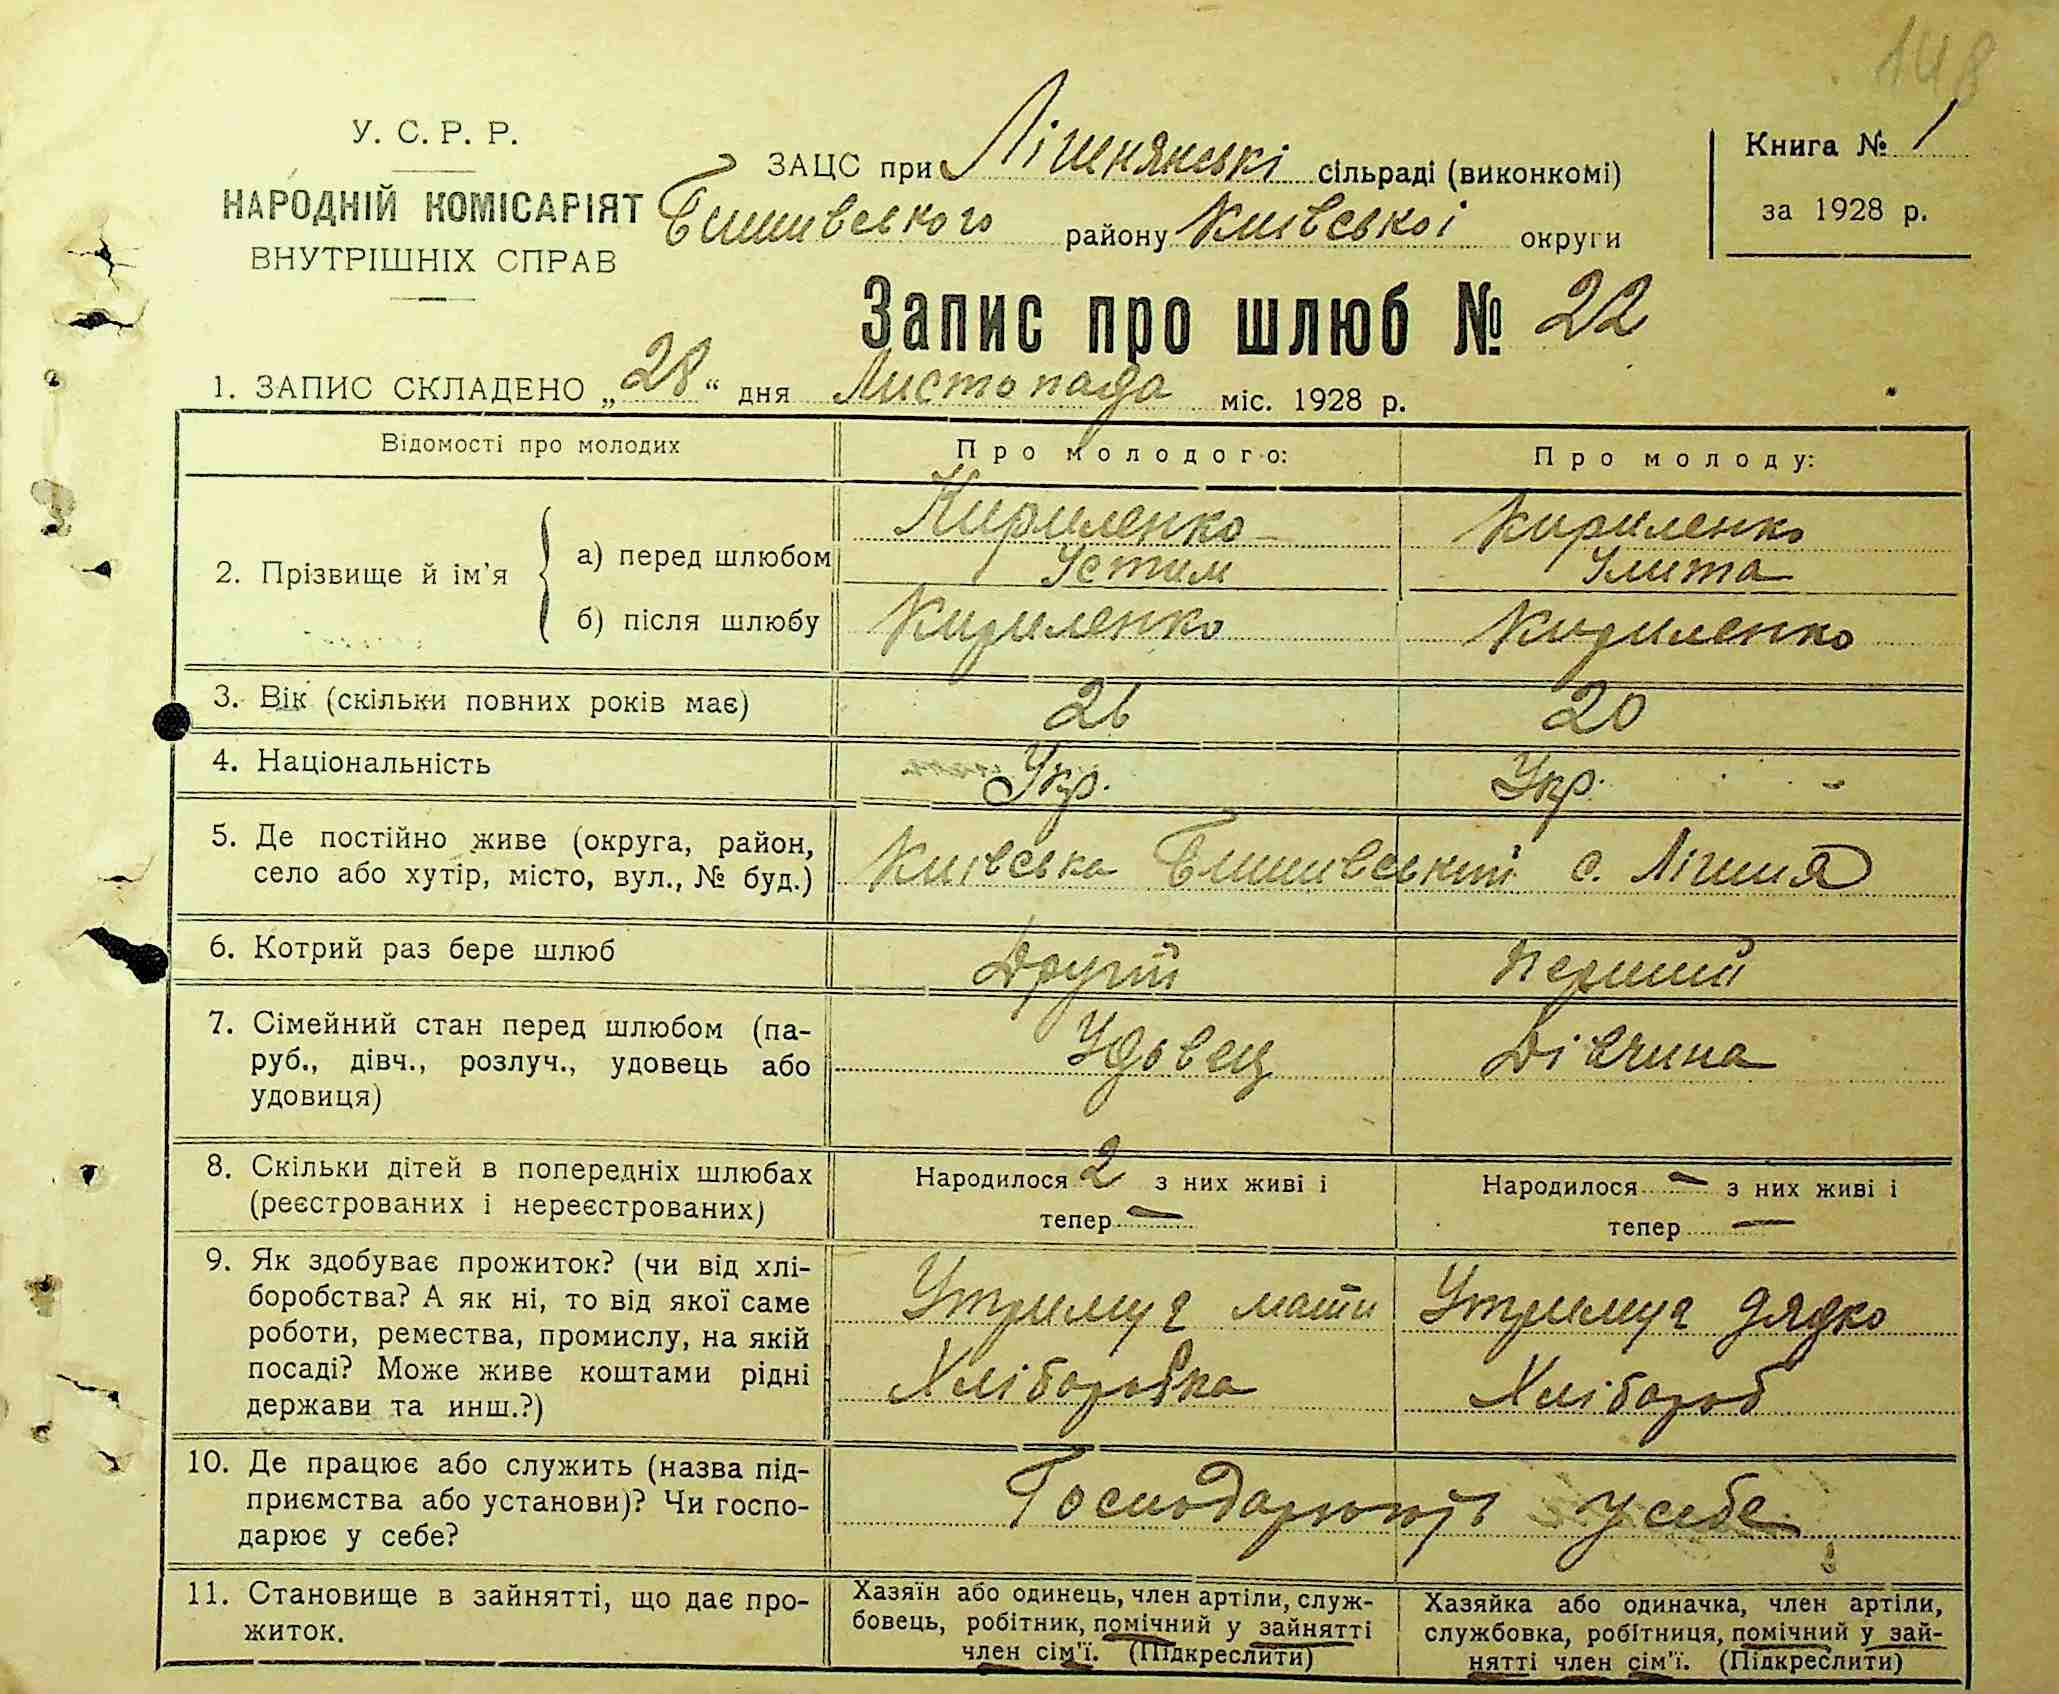 148
У. С. Р. Р.
НАРОДНІЙ КОМІСАРІЯТ
ВНУТРІШНІХ СПРАВ
ЗАЦС при Лішнянські сільраді (виконкомі)
Бишивського району Київської округи
Книга № 1
за 1928 р.
Запис про шлюб № 22
1. ЗАПИС СКЛАДЕНО „28“ дня Листопада міс. 1928 р.
Відомості про молодих
Про молодого:
Про молоду:
2. Прізвище й ім'я
а) перед шлюбом
Кириленко
Устим
Кириленко
Улита
б) після шлюбу
Кириленко
Кириленко
3. Вік (скільки повних років має)
26
20
4. Національність
Укр.
Укр.
5. Де постійно живе (округа, район,
село або хутір, місто, вул., № буд.)
Київська Бишивський с. Лішня
6. Котрий раз бере шлюб
Другий
Перший
7. Сімейний стан перед шлюбом (па-
руб., дівч., розлуч., удовець або
удовиця)
Удовец
Дівчина
8. Скільки дітей в попередніх шлюбах
(реєстрованих і нереєстрованих)
Народилося 2 з них живі і
тепер —
Народилося — з них живі і
тепер —
9. Як здобуває прожиток? (чи від хлі-
боробства? А як ні, то від якої саме
роботи, ремества, промислу, на якій
посаді? Може живе коштами рідні
держави та инш.?)
Утримує мати
Хліборобка
Утримує дядко
Хлібороб
10. Де працює або служить (назва під-
приємства або установи)? Чи госпо-
дарює у себе?
Господарюють у себе
11. Становище в зайнятті, що дає про-
житок.
Хазяїн або одинець, член артіли, служ-
бовець, робітник, помічний у зайнятті
член сім'ї. (Підкреслити)
Хазяйка або одиначка, член артіли,
службовка, робітниця, помічний у зай-
нятті член сім'ї. (Підкреслити)